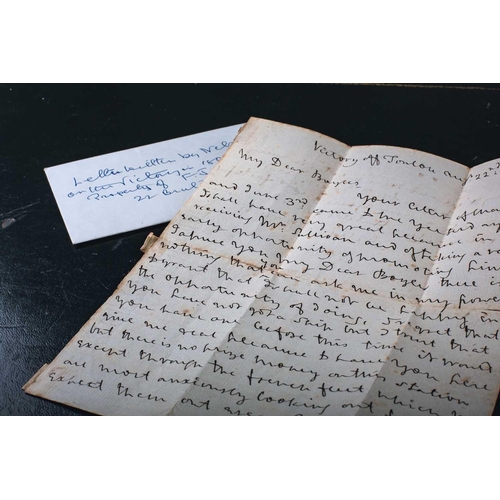 Letter written by Nels
on the Victory in 180
Property of
21
Victory off Toulon Aug 22nd
My Dear Bayles
Your letters of
and June 3rd came to me yes and
I shall have very great pleasure in
receiving Mr Sullivan and of taking an
early opportunity of promoting him
I assure you my Dear Bayles there
nothing that you ask me in my power
to grant that I shall not be happy in
the opportunity of doing, I regret that
you have not got a ship but I trust that
you had one before this time, it would
give me great pleasure to have you here
but there is no prize money on this station
except through the french fleet which we
are most anxiously looking out for
expect them out